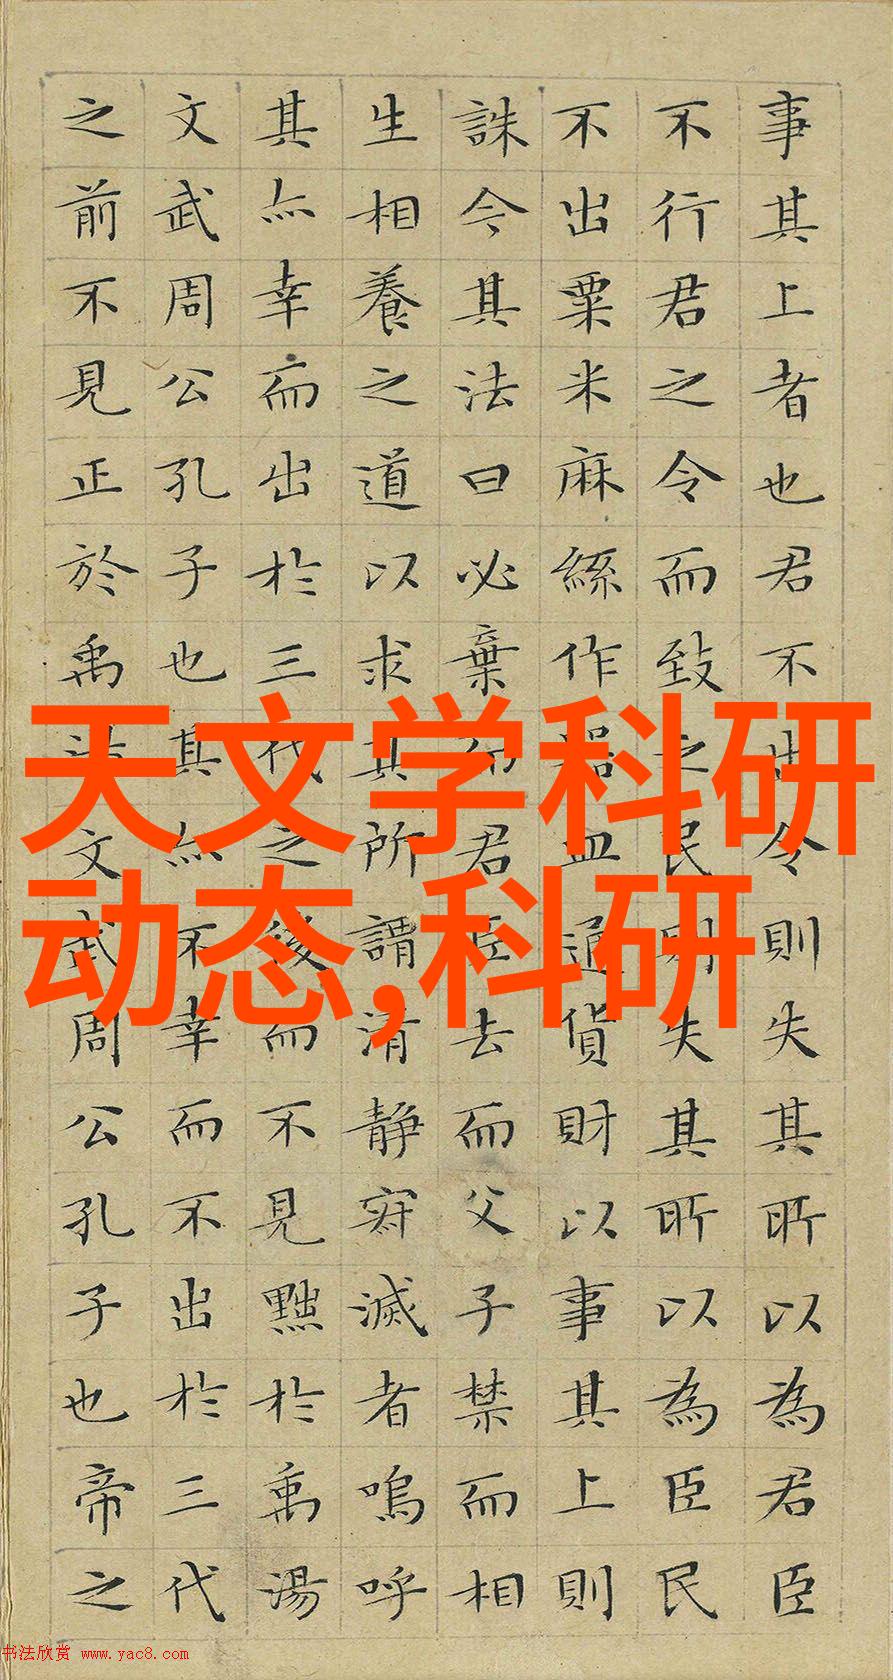 事其上者也君不出令則失其所以為君臣
不行君之令而致之民則失其所以為臣民
不出粟米麻絲作器皿通貨財以事其上則
誅今其法曰必棄而君臣去而父子禁而相
生相養之道以求其所謂清静寂滅者嗚呼
其亦幸而出於三代之後而不見黜於禹湯
文武周公孔子也其亦不幸而不出於三代
之前不見正於禹湯文武周公孔子也帝之
天文学科研
动态,科研
书法欣赏 www.yac8.com